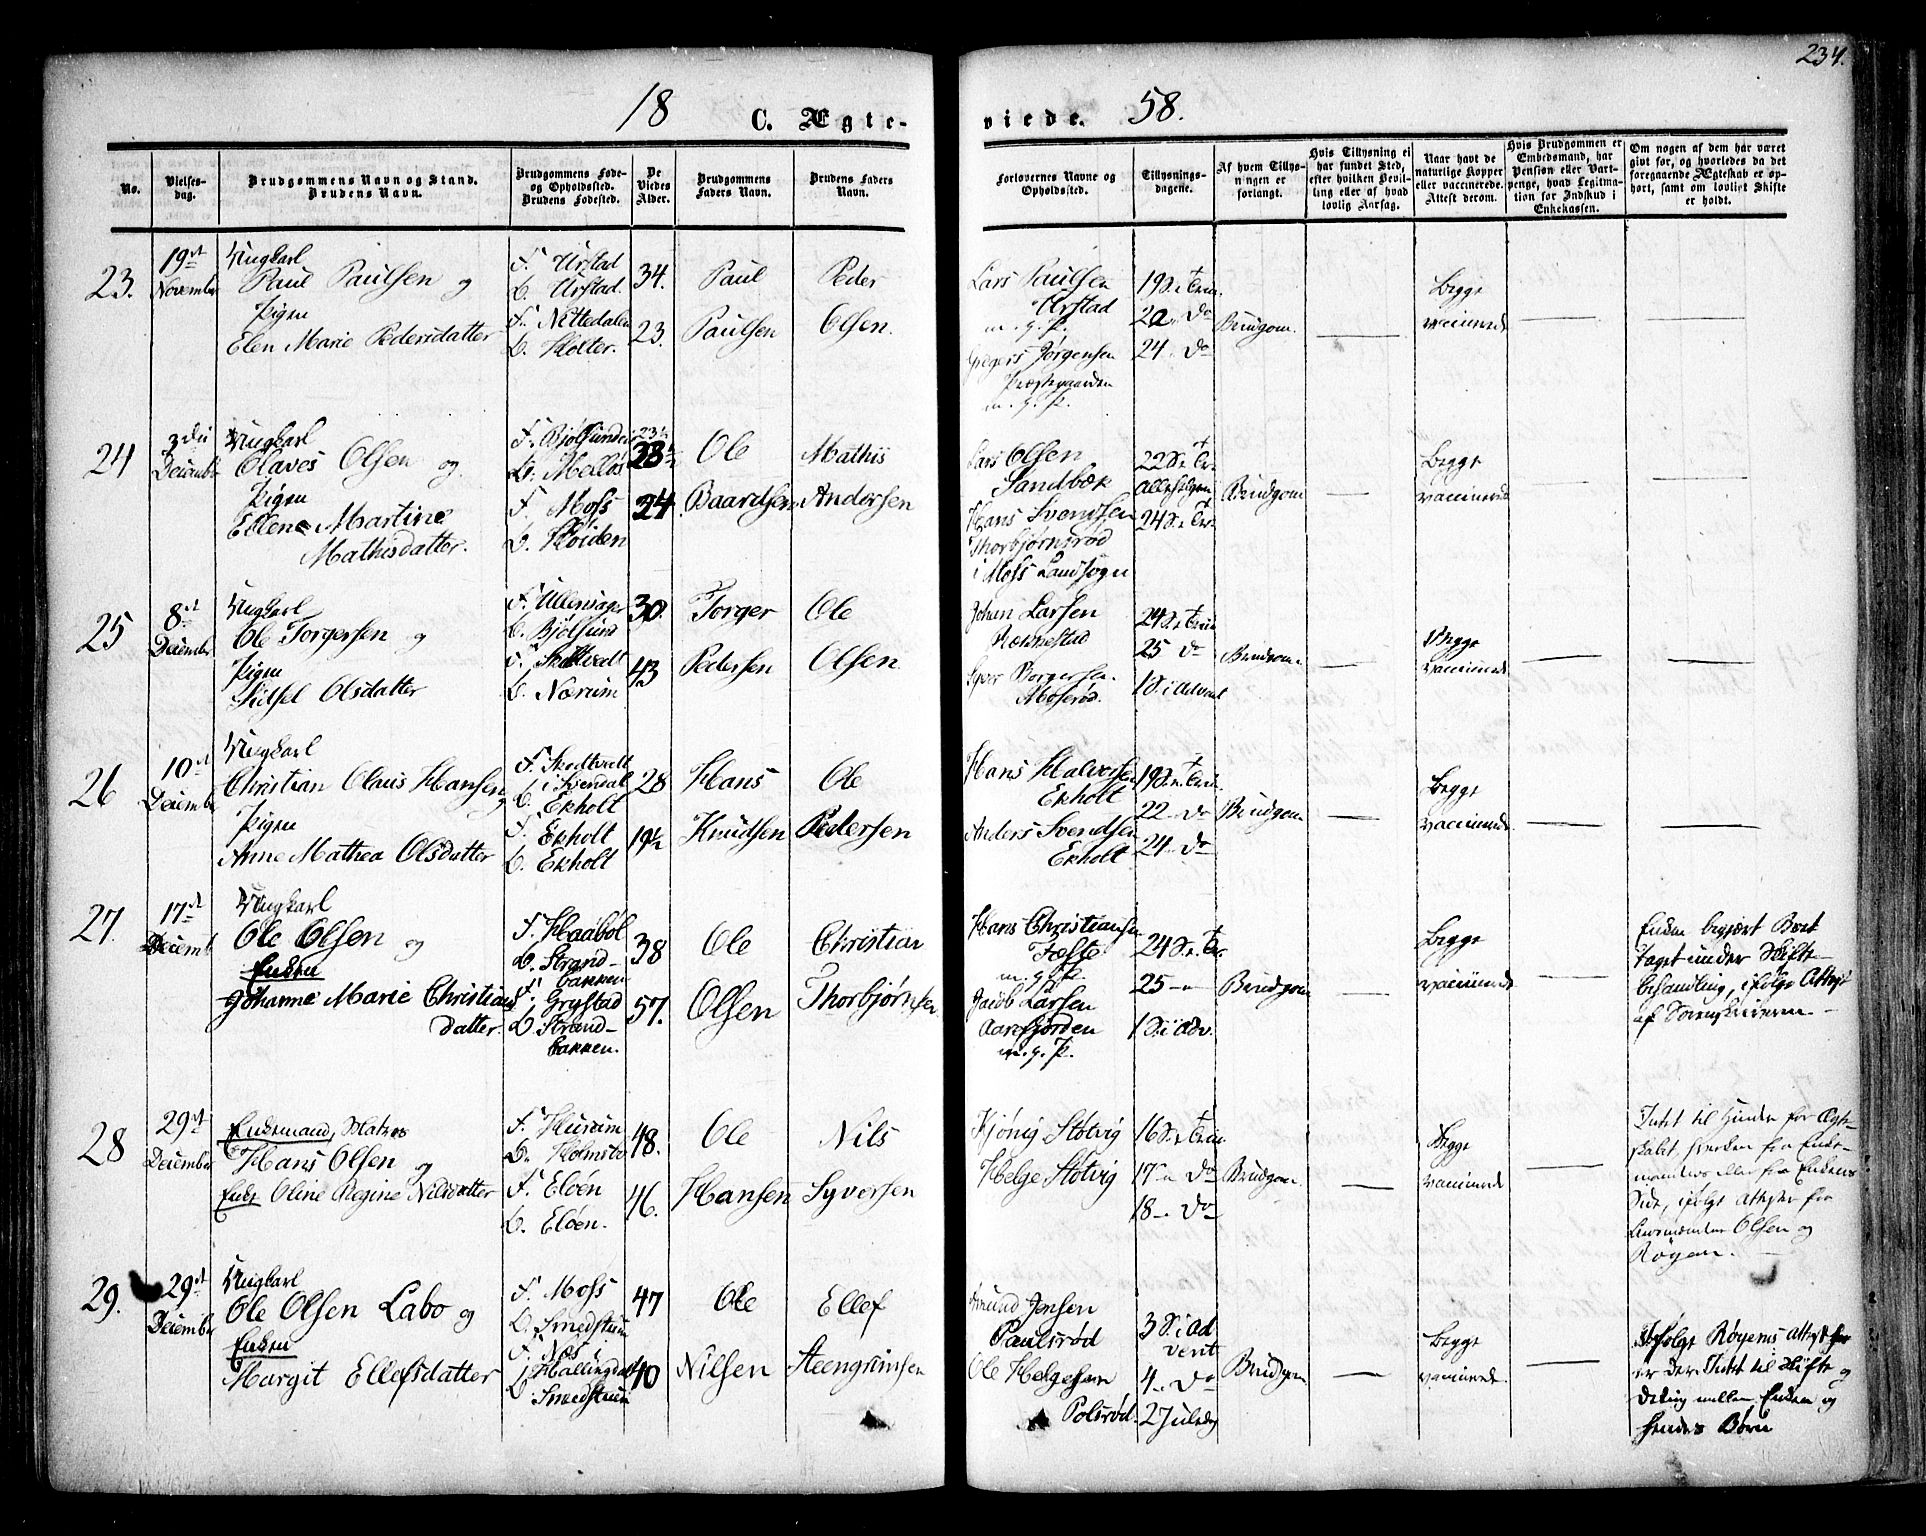 234.
18 C. Ægte-viede. 58.
No.
Vielses-
dag.
Brudgommens Navn og Stand.
Brudens Navn.
Brudgommens Føde-
og Opholdssted.
Brudens Fødested.
De
Viedes
Alder.
Brudgommens
Faders Navn.
Brudens Faders
Navn.
Forlovernes Navne og
Opholdssted.
Tillysnings-
dagene.
Af hvem Tillys-
ningen er
forlangt.
Hvis Tillysning ei
har fundet Sted,
efter hvilken Bevil-
ling eller af hvad
lovlig Aarsag.
Naar havt de
naturlige Kopper
eller vaccinerede.
Attest derom.
Hvis Brudgommen er
Embedsmand, har
Pension eller Vart-
penge, hvad Legitima-
tion for Indskud i
Enkekassen.
Om nogen af dem har været
givt før, og hvorledes da det
foregaaende Ægteskab er op-
hørt, samt om lovligt Skifte
er holdt.
23.
19de
November
Ungkarl
Paul Paulsen og
Pigen
Elen Marie Pedersdatter
F. Urstad
B. Urstad.
F. Nittedalen
B. Holter.
34.
23.
Paul
Paulsen
Peder
Olsen.
Lars Paulsen
Urstad
m. g. P.
Gregers Jørgensen
Præstegaarden
m. g. P.
19 S. e. Trin.
20 " Do
24 " Do
Brudgom.
Begge
vaccinerede
24
3die
Decembr
Ungkarl
Olaves Olsen og
Pigen
Ellene Martine
Mathisdatter.
F. Bjølsund
B. Melløs
F. Moss
B. Høiden
23½
24
Ole
Baardsen
Mathis
Andersen
Lars Olsen
Sandbæk
Hans Svendsen
Thorbjørnsrød
i Moss Landsogn
22 S. e. Tr.
Allehelgen
24 S. e. Tr.
Brudgom
Begge
vaccinerede
25
8de
December
Ungkarl
Ole Torgersen og
Pigen
Sidsel Olsdatter
F. Ullensager
B. Bjølsund
F. Skottvedt
B. Nærum
30.
43
Torger
Pedersen
Ole
Olsen
Johan Larsen
Rommestad
Syver Borgersen
Moserød.
24 S. e. Trin
25 Do
1 S. i Advent
Brudgom
Begge
vaccinerede
26
10de
December
Ungkarl
Christian Olaus Hansen og
Pigen
Anne Mathea Olsdatter
F. Skottvedt
i Svendal
B. Ekholt
F. Ekholt
B. Ekholt
28
19½
Hans
Knudsen
Ole
Pedersen
Hans Halvorsen
Ekholt
Anders Svendsen
Ekholt
19 S. e. Trin.
22 " Do
24 " Do
Brudgom
Begge
vaccinerede
27.
17de
Decemb
Ungkarl
Ole Olsen og
Enken
Johanne Marie Christians
datter.
F. Haabøl
B. Strand-
bakken
F. Grystad
B. Strand-
bakken.
38
57.
Ole
Olsen
Christian
Thorbjørnsen
Hans Christiansen
Tæfte
m. g. P.
Jacob Larsen
Aarefjorden
m. g. P.
24 S. e. Tr.
25 - "
1 S. i Adv.
Brudgom
Begge
vaccinerede
Enken begjært Boet
taget under Skifte-
behandling, ifølge Attest
af Sorenskriveren -
28
29de
December
Enkemand, Matros
Hans Olsen og
Enke Oline Regine Nilsdatter
F. Hurum
B. Holmsbo
F. Eløen
B. Eløen.
48.
46.
Ole
Hansen
Nils
Syversen
Kjønig Støtvig
Helge Støtvig
16 S. e. Trin
17 " Do
18 - Do
Brudgom
Begge
vaccinerede
Intet til Hinder for Ægte-
skabet, hverken fra Enke-
mandens eller fra Enkens
Side, ifølge Attester fra
Lensmændene Olsen og
Røyem. -
29.
29de
December
Ungkarl
Ole Olsen Labo og
Enken
Margit Ellefsdatter
F. Moss
B. Smedstuen
F. Næs i
Hallingdal
B. Smedstuen
47
40
Ole
Nilsen
Ellef
Steengrimsen
Amund Jensen
Paulsrød
Ole Helgesen
Polsrød.
3 S. i Ad
vent
4 - Do
2 Juledag
Brudgom
Begge
vaccinerede
Ifølge Røyems Attest
er der Intet til Skifte og
Deling mellem Enken og
hendes Børn